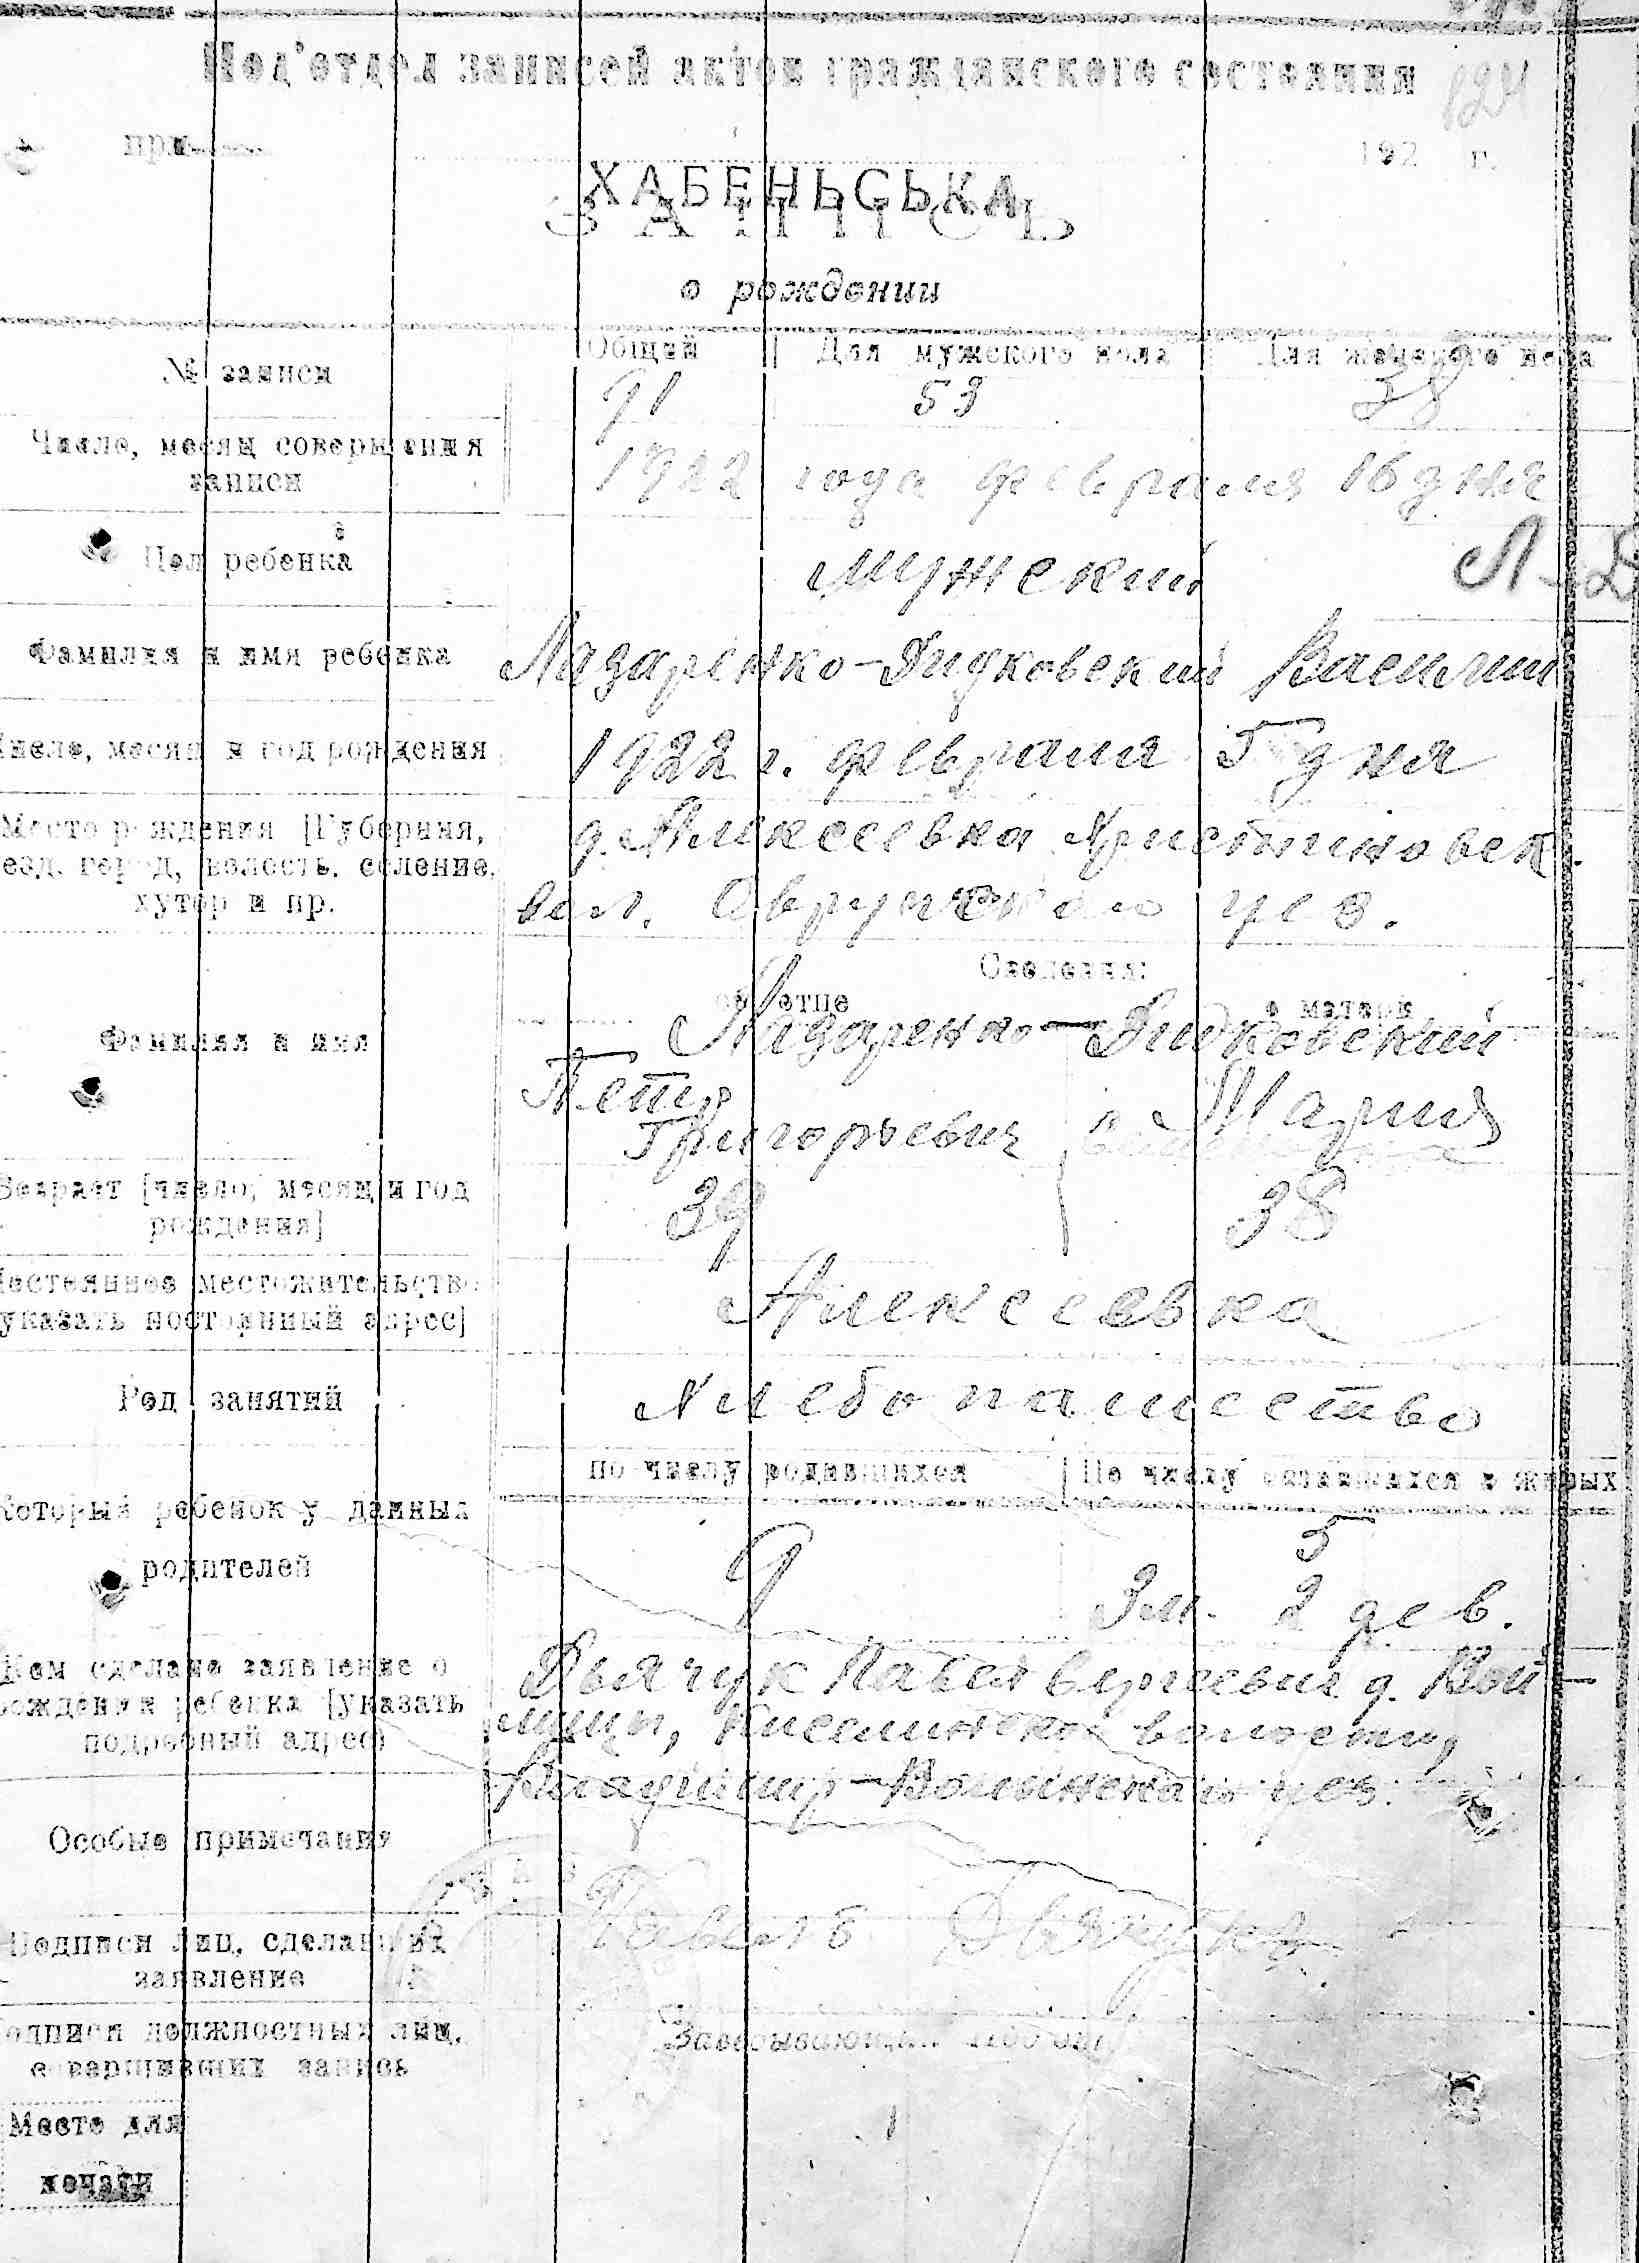 Под'отдел записей актов гражданского состояния
при 192 г.
ХАБЕНЬСЬКА
ЗАПИСЬ
о рождении
№ записи
Общий Для мужского пола Для женского пола
91 53 38
Число, месяц совершения
записи
1922 года февраля 16 дня
Пол ребенка
мужский
Л-Д
Фамилия и имя ребенка
Лазаренко-Дидковский Василий
Число, месяц и год рождения
1922 г. февраля 5 дня
Место рождения [Губерния,
уезд, город, волость, селение,
хутор и пр.
д. Алексеевка Христиновск.
вол. Овручского уез.
Сведения:
об отце о матери
Фамилия и имя
Лазаренко-Дидковский
Петр
Григорьевич Мария
Возраст [число, месяц и год
рождения]
39 38
Постоянное местожительство
указать постоянный адрес]
Алексеевка
Род занятий
Хлебопашество
по числу родившихся По числу оставшихся в живых
Который ребенок у данных
родителей
9 5
3 м. 2 дев.
Кем сделано заявление о
рождении ребенка [указать
подробный адрес)
Дьячук Павел Сергеевич д. Вой-
Владимир-Волынского уез.
Особые примечания
Подписи лиц, сделавших
заявление
Павел Дьячук
Подписи должностных лиц,
совершивших запись
Место для
печати